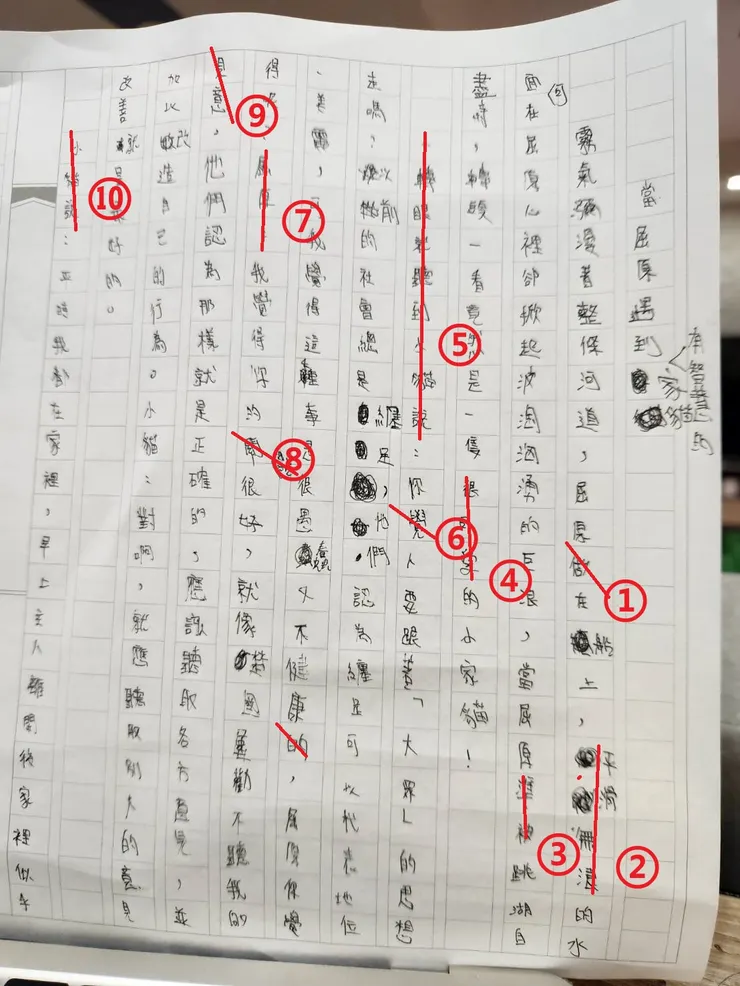 當屈原遇到有智慧的家貓
霧氣瀰漫著整條河道,屈原做在船上,平滑無漣的水
面在屈原心裡卻掀起波濤洶湧的巨浪,當屈原準被跳湖自
盡時,轉頭一看竟然是一隻很的小家貓!
,轉眼就聽到小貓說:你覺人要跟著「大眾」的思想
走嗎?以前的社會總是纏足,他們認為纏足可以代表地位
、美麗,可我覺得這種事是很愚蠢又不健康的,屈原你覺
得呢?屈原:我覺得你的很好,就像楚國勸不聽我的
意,他們認為那樣就是正確的,應該聽取各方意見,並
加以改造自己的行為。小貓:對啊,就應聽取別人的意見
改善就是最好的。
小貓說:正時我都在家裡,早上主人離開後家裡似乎
①
②
③
④
⑤
⑥
⑦
⑧
⑨
⑩